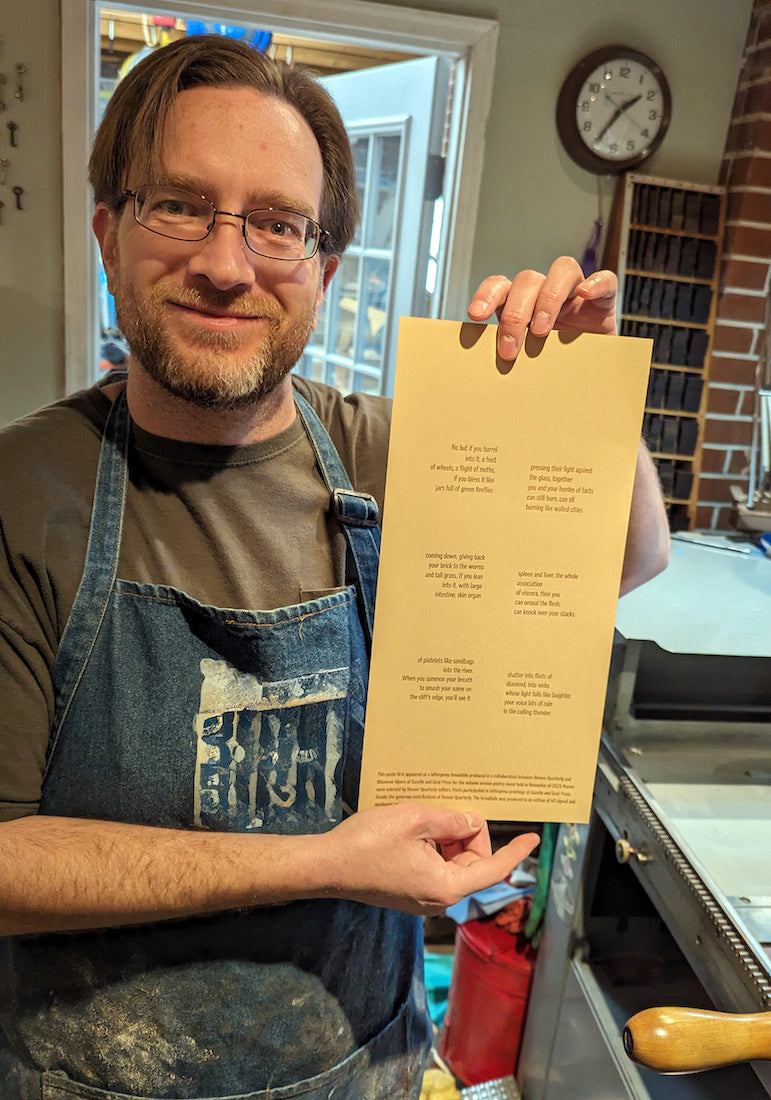 12
1
2
3
4
5
6
7
8
9
10
11
No but if you barrel
into it, a host
of wheels, a flight of moths,
if you bless it like
jars full of green fireflies
pressing their light against
the glass, together
you and your hordes of facts
can still burn, can sit
burning like walled cities
coming down, giving back
your brick to the worms
and tall grass. If you lean
into it, with large
intestine, skin organ
spleen and liver, the whole
association
of viscera, then you
can unseal the flesh,
can knock over your stacks
of platelets like sandbags
into the river.
When you summon your breath
to smash your name on
the cliff's edge, you'll see it
shatter into flints of
diamond, into webs
whose light falls like laughter,
your voice bits of rain
in the calling thunder.
This poem first appeared as a letterpress broadside produced in a collaboration between Denver Quarterly and
Rhiannon Alpers of Gazelle and Goat Press for the autumn session poetry event held in November of 2023. Poems
were selected by Denver Quarterly editors. Poets participated in letterpress printings of Gazelle and Goat Press
thanks the generous contributions of Denver Quarterly. The broadside was produced in an edition of 60 signed and